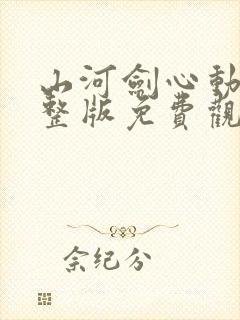 山河劍心動
整版免費觀
佘纪分